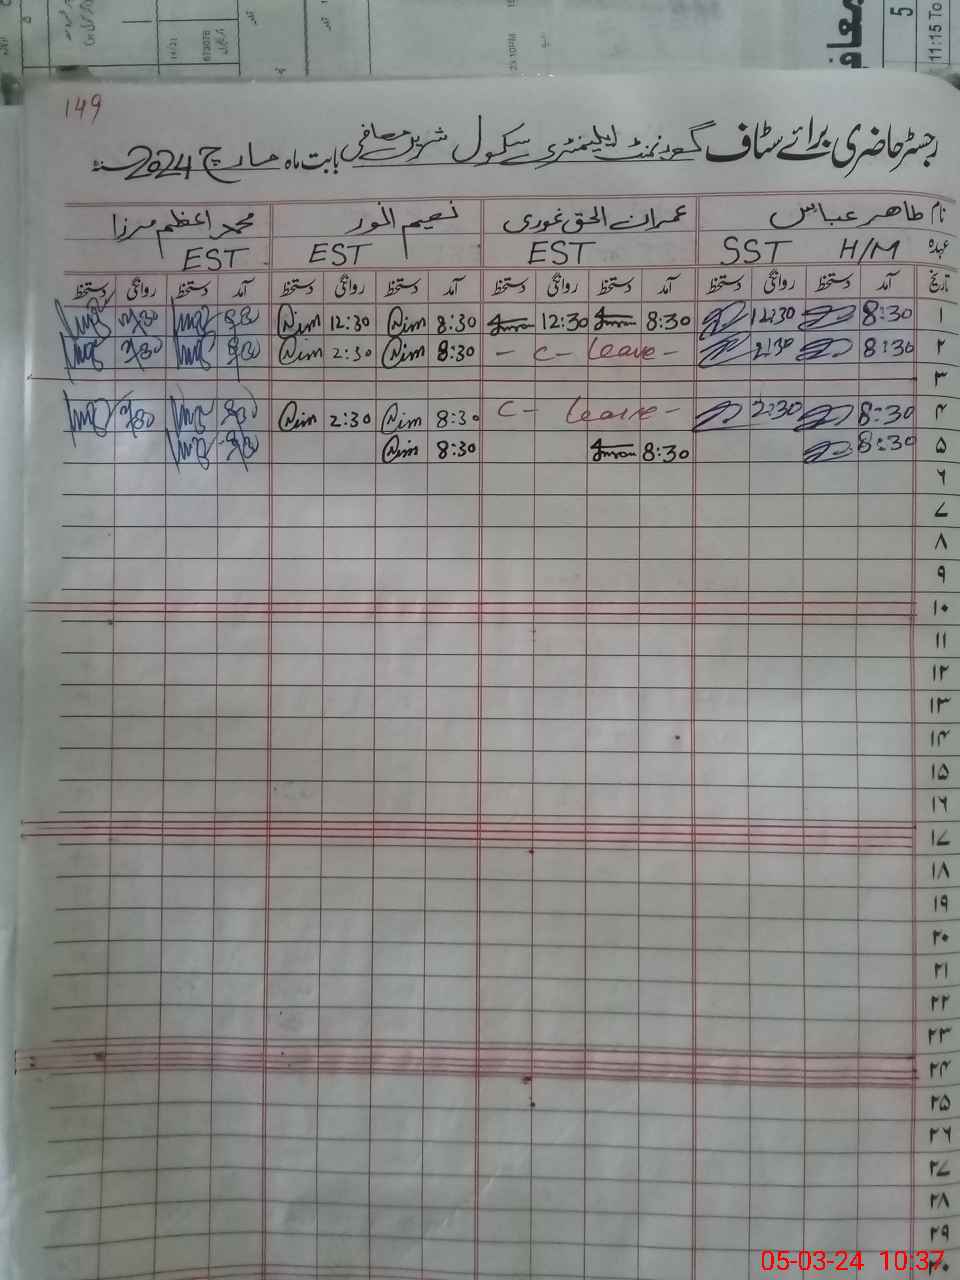 149
رجسٹر حاضری برائے سٹاف گورنمنٹ ایلیمنٹری سکول شریں معافی بابت ماہ مارچ 2024
نام طاهر عباس عمران الحق غوری نعیم انور محمد اعظم مرزا
عہدہ H/M SST EST EST EST
تاریخ آمد دستخط روانگی دستخط آمد دستخط روانگی دستخط آمد دستخط روانگی دستخط آمد دستخط روانگی دستخط
۱ 8:30 12:30 8:30 Imran 12:30 Imran 8:30 Nim 12:30 Nim 8:30
۲ 8:30 2:30 - C - Leave - 8:30 Nim 2:30 Nim 8:30
۳
۴ 8:30 2:30 C - Leave - 8:30 Nim 2:30 Nim 8:30
۵ 8:30 8:30 Imran 8:30 Nim 8:30
۶
۷
۸
۹
۱۰
۱۱
۱۲
۱۳
۱۴
۱۵
۱۶
۱۷
۱۸
۱۹
۲۰
۲۱
۲۲
۲۳
۲۴
۲۵
۲۶
۲۷
۲۸
۲۹
۳۰
معاف
5
11:15 To
05-03-24 10:37